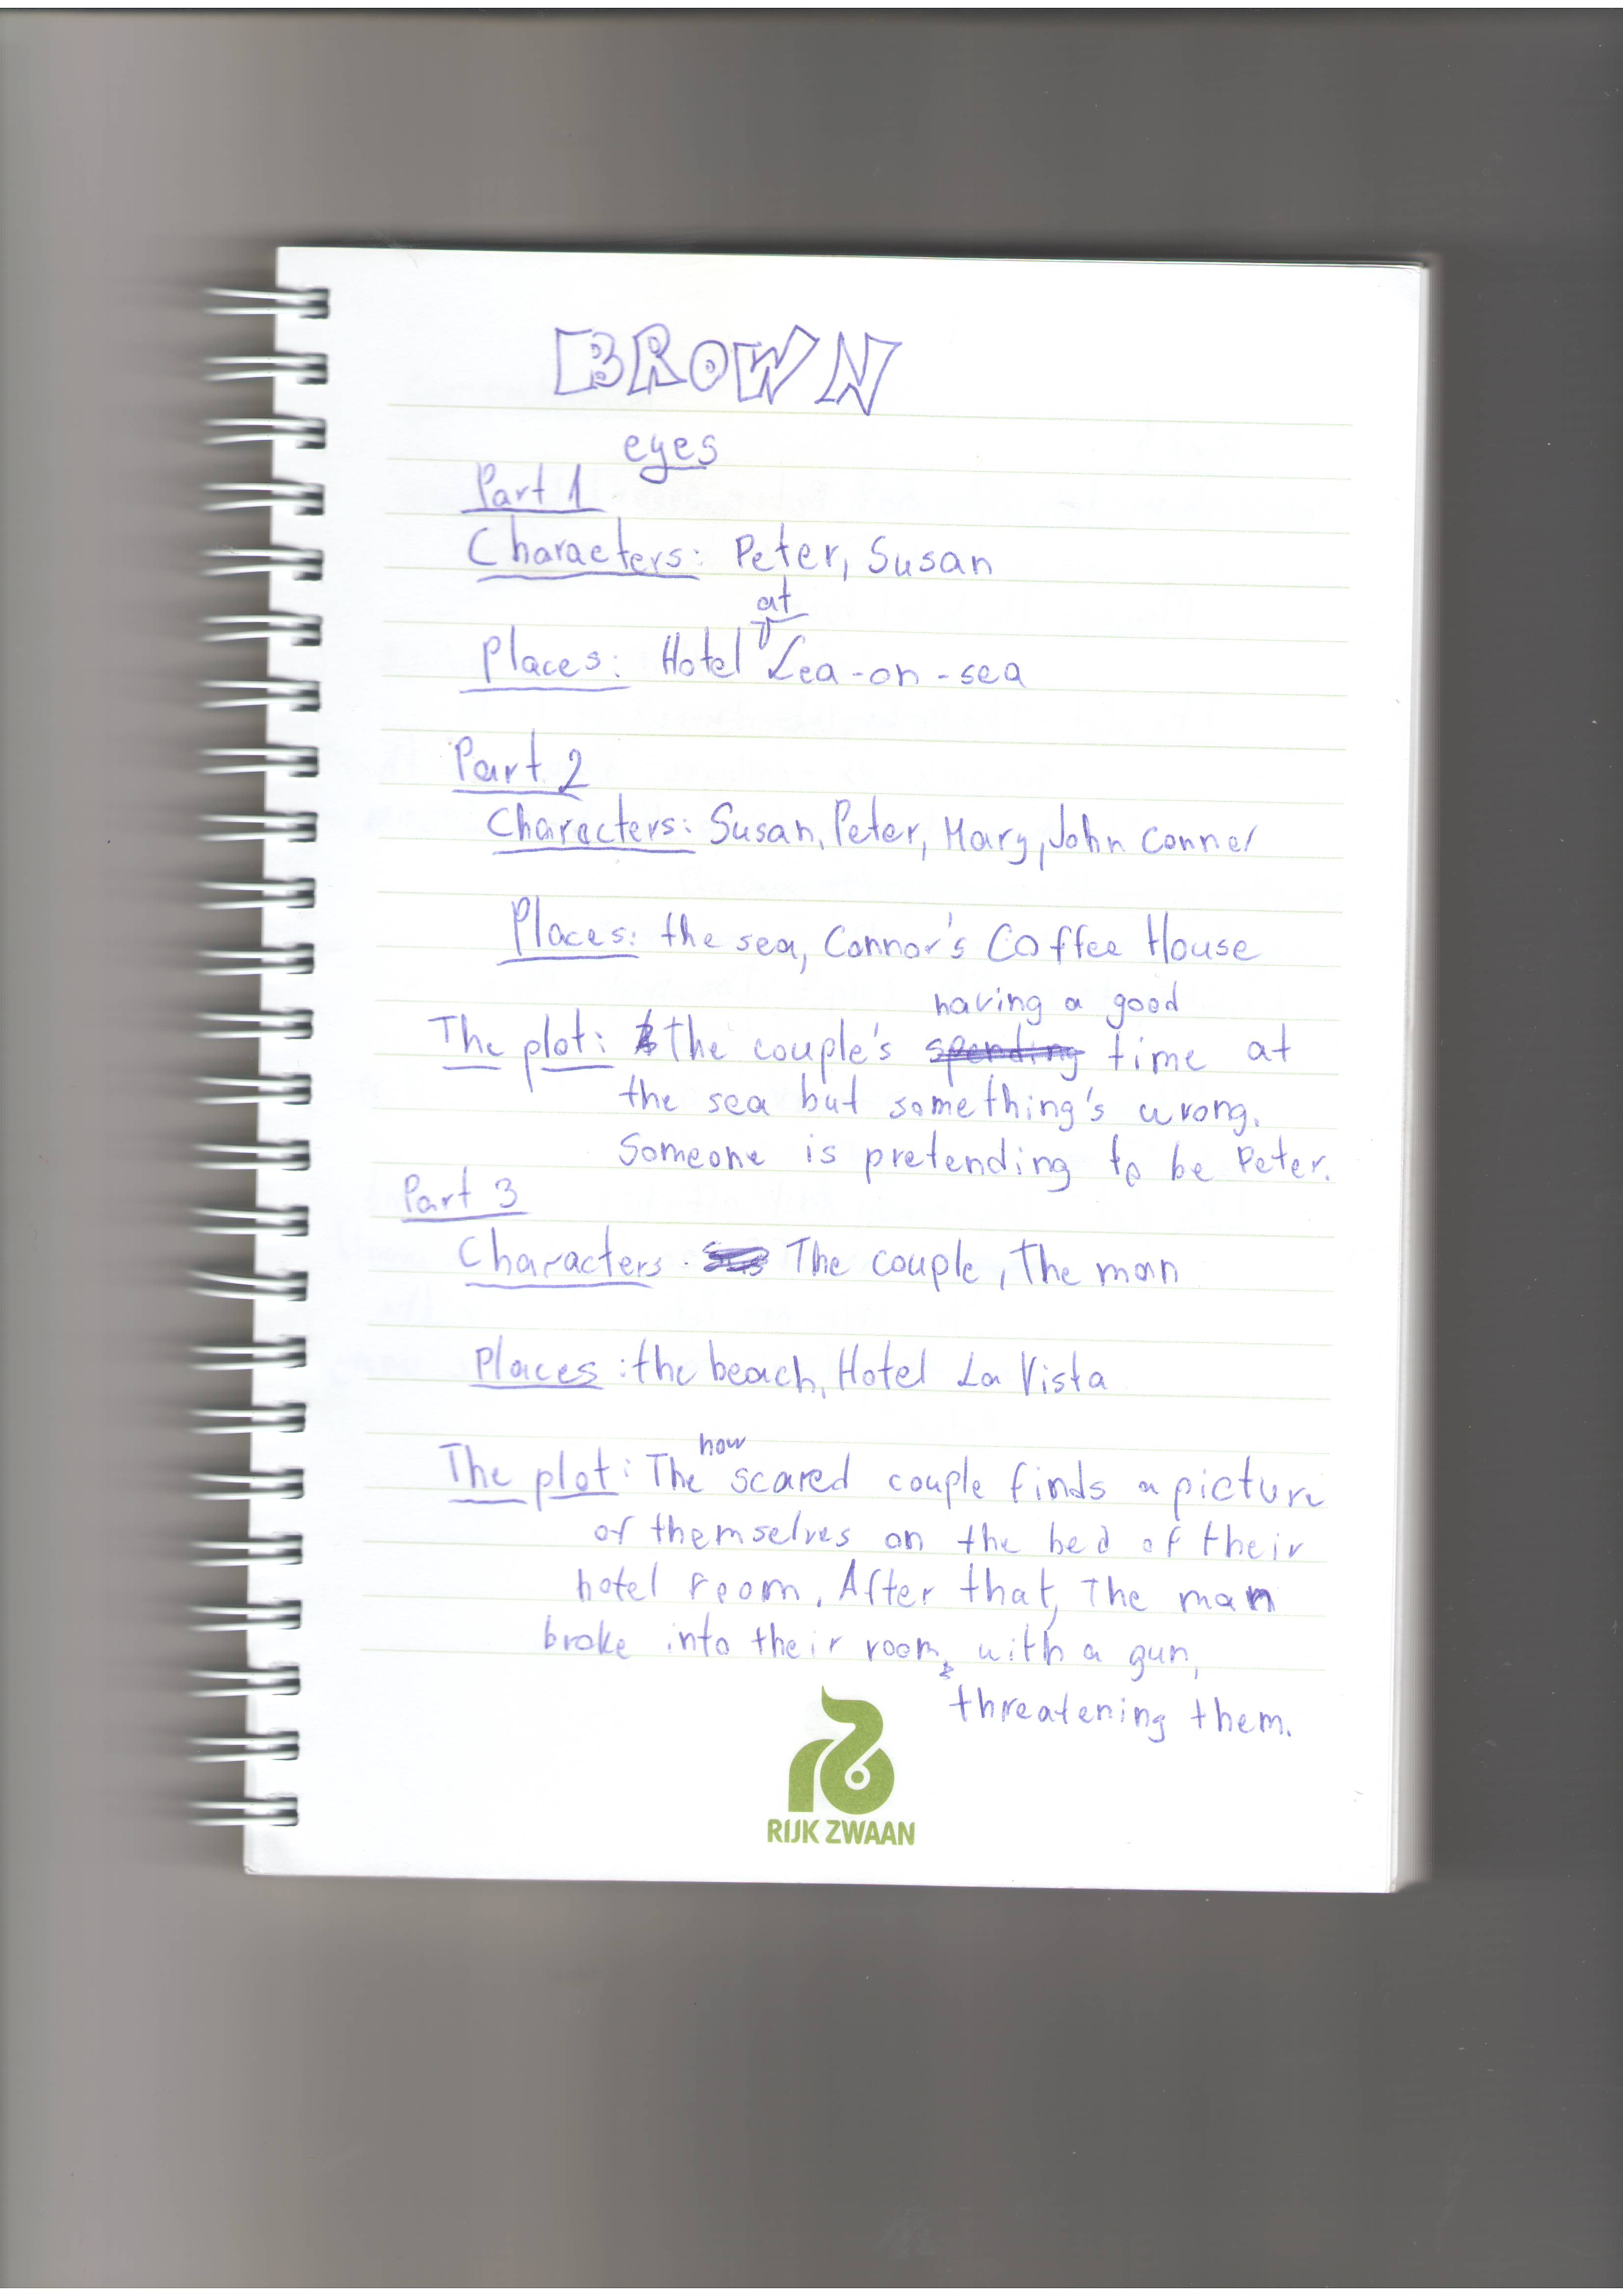 BROWN
eyes
Part 1
Characters: Peter, Susan
at
Places: Hotel Lea-on-sea
Part 2
Characters: Susan, Peter, Mary, John Conner
Places: the sea, Connor's Coffee House
having a good
The plot: the couple's spending time at
the sea but something's wrong.
Someone is pretending to be Peter.
Part 3
Characters. The couple, The man
Places: the beach, Hotel La Vista
now
The plot: The scared couple finds a picture
of themselves on the bed of their
hotel room. After that, The man
broke into their room, with a gun,
threatening them.
RIJK ZWAAN